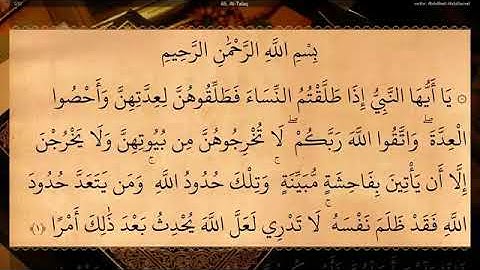 65. At-Talaq
بِسْمِ اللَّهِ الرَّحْمَٰنِ الرَّحِيمِ
يَا أَيُّهَا النَّبِيُّ إِذَا طَلَّقْتُمُ النِّسَاءَ فَطَلِّقُوهُنَّ لِعِدَّتِهِنَّ وَأَحْصُوا
الْعِدَّةَ ۖ وَاتَّقُوا اللَّهَ رَبَّكُمْ ۖ لَا تُخْرِجُوهُنَّ مِن بُيُوتِهِنَّ وَلَا يَخْرُجْنَ
إِلَّا أَن يَأْتِينَ بِفَاحِشَةٍ مُّبَيِّنَةٍ ۚ وَتِلْكَ حُدُودُ اللَّهِ ۚ وَمَن يَتَعَدَّ حُدُودَ
اللَّهِ فَقَدْ ظَلَمَ نَفْسَهُ ۚ لَا تَدْرِي لَعَلَّ اللَّهَ يُحْدِثُ بَعْدَ ذَٰلِكَ أَمْرًا ﴿١﴾